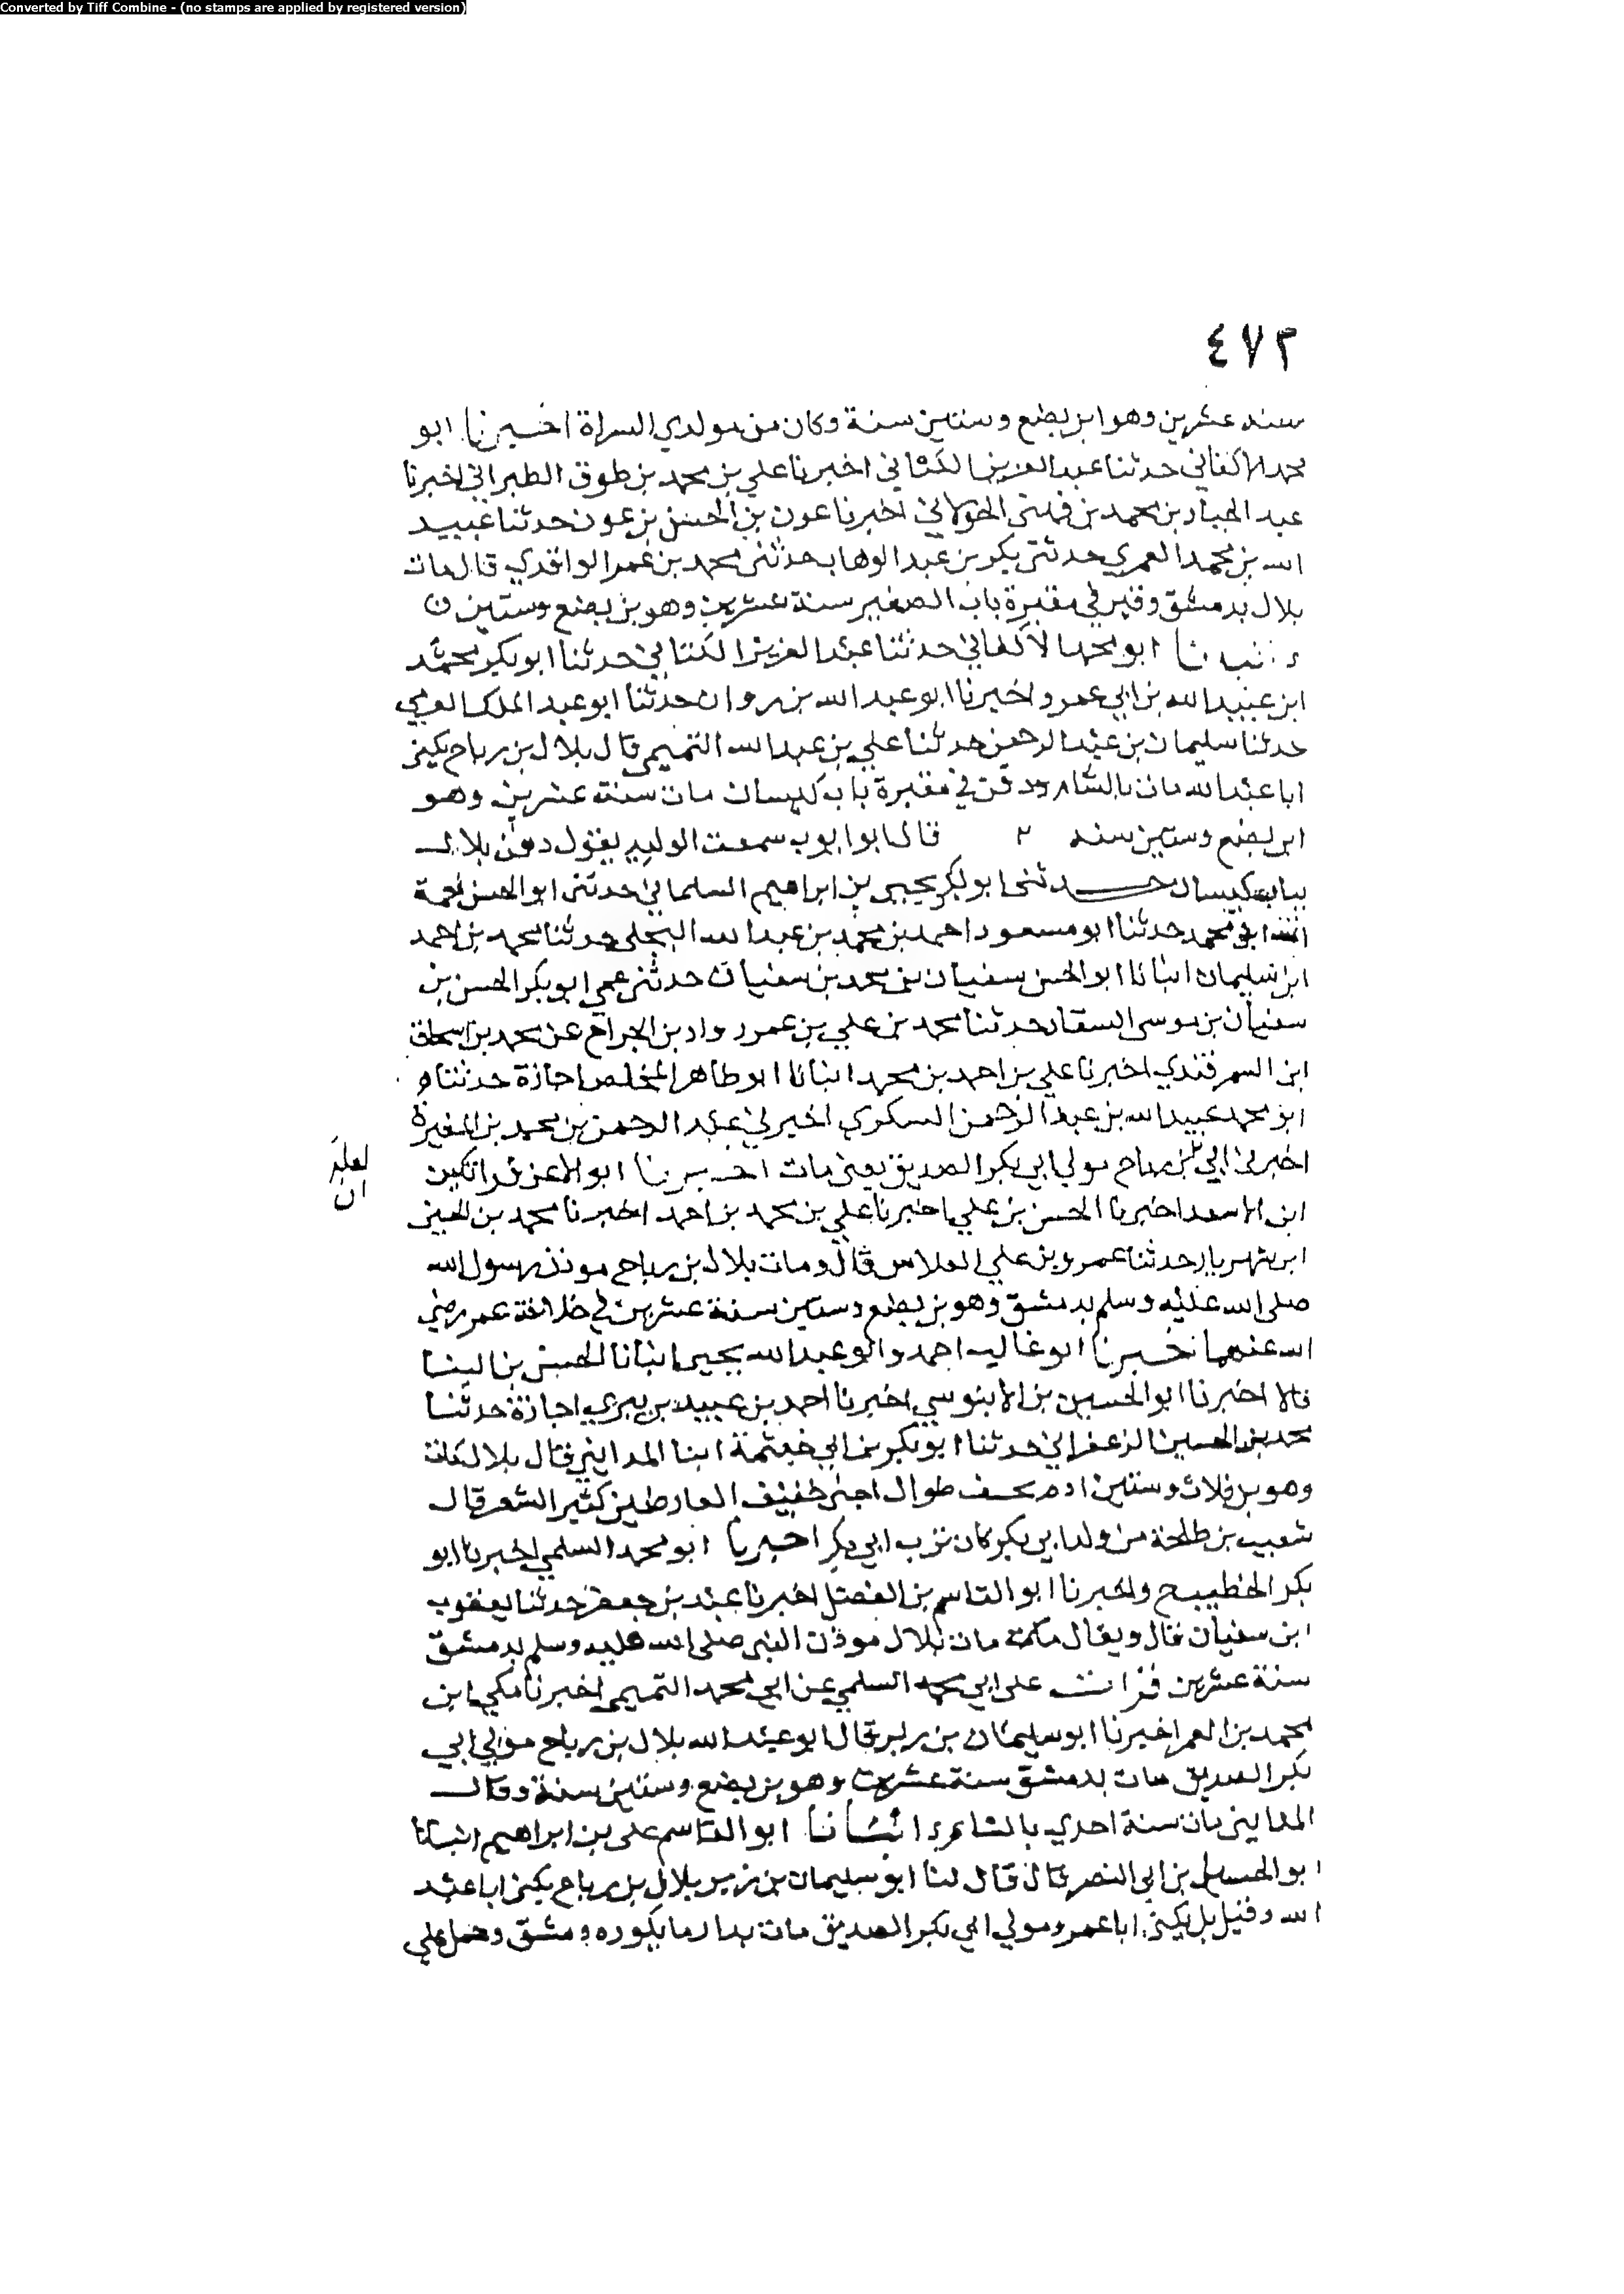 Converted by Tiff Combine - (no stamps are applied by registered version)
٤٧٢
سنه عشرين وهو ابن بضع وستين سنة وكان من مولدي السراة اخبرنا ابو
محمد الاكفاني حدثنا عبد العزيز الكتاني اخبرنا علي بن محمد بن طوق الطبراني اخبرنا
عبد الجبار بن محمد بن مهنى الخولاني اخبرنا عون بن الحسن بن عون حدثنا عبيد
الله بن محمد العمري حدثني بكر بن عبد الوهاب حدثني محمد بن عمر الواقدي قال مات
بلال بدمشق وقبر في مقبرة باب الصغير سنة عشرين وهو بن بضع وستين ن
ابو محمد الاكفاني حدثنا عبد العزيز الكتاني حدثنا ابو بكر محمد
ابن عبيد الله بن ابي عمرو اخبرنا ابو عبد الله بن مروان حدثنا ابو عبد الملك
حدثنا سليمان بن عبد الرحمن حدثنا علي بن عبد الله التميمي قال بلال بن رباح يكنى
ابا عبد الله مات بالشام ودفن في مقبرة باب كيسان مات سنة عشرين وهو
ابن بضع وستين سنه قال ابو ايوب سمعت الوليد يقول دفن بلال
بباب كيسان حدثني ابو بكر يحيى بن ابراهيم السلماني حدثني ابو الحسن نعمة
الله بن محمد حدثنا ابو مسعود احمد بن محمد بن عبد الله البجلي حدثنا محمد بن احمد
ابن سليمان انبانا ابو الحسن سفيان بن محمد بن سفيان حدثني عمي ابو بكر الحسن بن
سفيان بن موسى السقار حدثنا محمد بن علي بن عمر رواد بن الجراح عن محمد بن اسحاق
ابن السمرقندي اخبرنا علي بن احمد بن محمد انبانا ابو طاهر المخلص اجازة حدثنا
ابو محمد عبيد الله بن عبد الرحمن السكري اخبرني عبد الرحمن بن محمد بن المغيرة
اخبرني ابي بن رباح مولي ابي بكر الصديق يعني مات اخبرنا ابو الاعز قراتكين
لعله
ان
ابن الاسعد اخبرنا الحسن بن علي اخبرنا علي بن محمد بن احمد اخبرنا محمد بن الحسين
ابن شهريار حدثنا عمرو بن علي الفلاس قال ومات بلال بن رباح موذن رسول الله
صلى الله عليه وسلم بدمشق وهو بن بضع وستين سنة عشرين في خلافة عمر رضي
الله عنهما اخبرنا ابو غالب احمد وابو عبد الله يحيى انبانا الحسن بن البنا
قالا اخبرنا ابو الحسين بن الابنوسي اخبرنا احمد بن عبيد بن بيري اجازة حدثنا
محمد بن الحسين الزعفراني حدثنا ابو بكر بن ابي خيثمة ابنا المدايني قال بلال مات
وهو بن ثلاث وستين ادم نحيف طوال اجنى خفيف العارضين كثير الشعر قال
شعيب بن طلحة من ولد ابي بكر كان ترب ابي بكر اخبرنا ابو محمد السلمي اخبرنا ابو
بكر الخطيب ح واخبرنا ابو القاسم بن الفضل اخبرنا عبد بن جعفر حدثنا يعقوب
ابن سفيان قال ويقال مات بلال موذن النبي صلى الله عليه وسلم بدمشق
سنة عشرين قرات على ابي محمد السلمي عن ابي محمد التميمي اخبرنا مكي ابن
محمد بن الغمر اخبرنا ابو سليمان بن زبر قال ابو عبد الله بلال بن رباح مولي ابي
بكر الصديق مات بدمشق سنة عشرين وهو بن بضع وستين سنة وقال
المدايني مات سنة احدي بالشام انبانا ابو القاسم علي بن ابراهيم انبانا
ابو الحسين بن ابي النصر قال قال لنا ابو سليمان بن زبر بلال بن رباح يكنى ابا عبد
الله وقيل بل يكنى ابا عمر ومولي ابي بكر الصديق مات بداريا بكوره دمشق وحمل علي